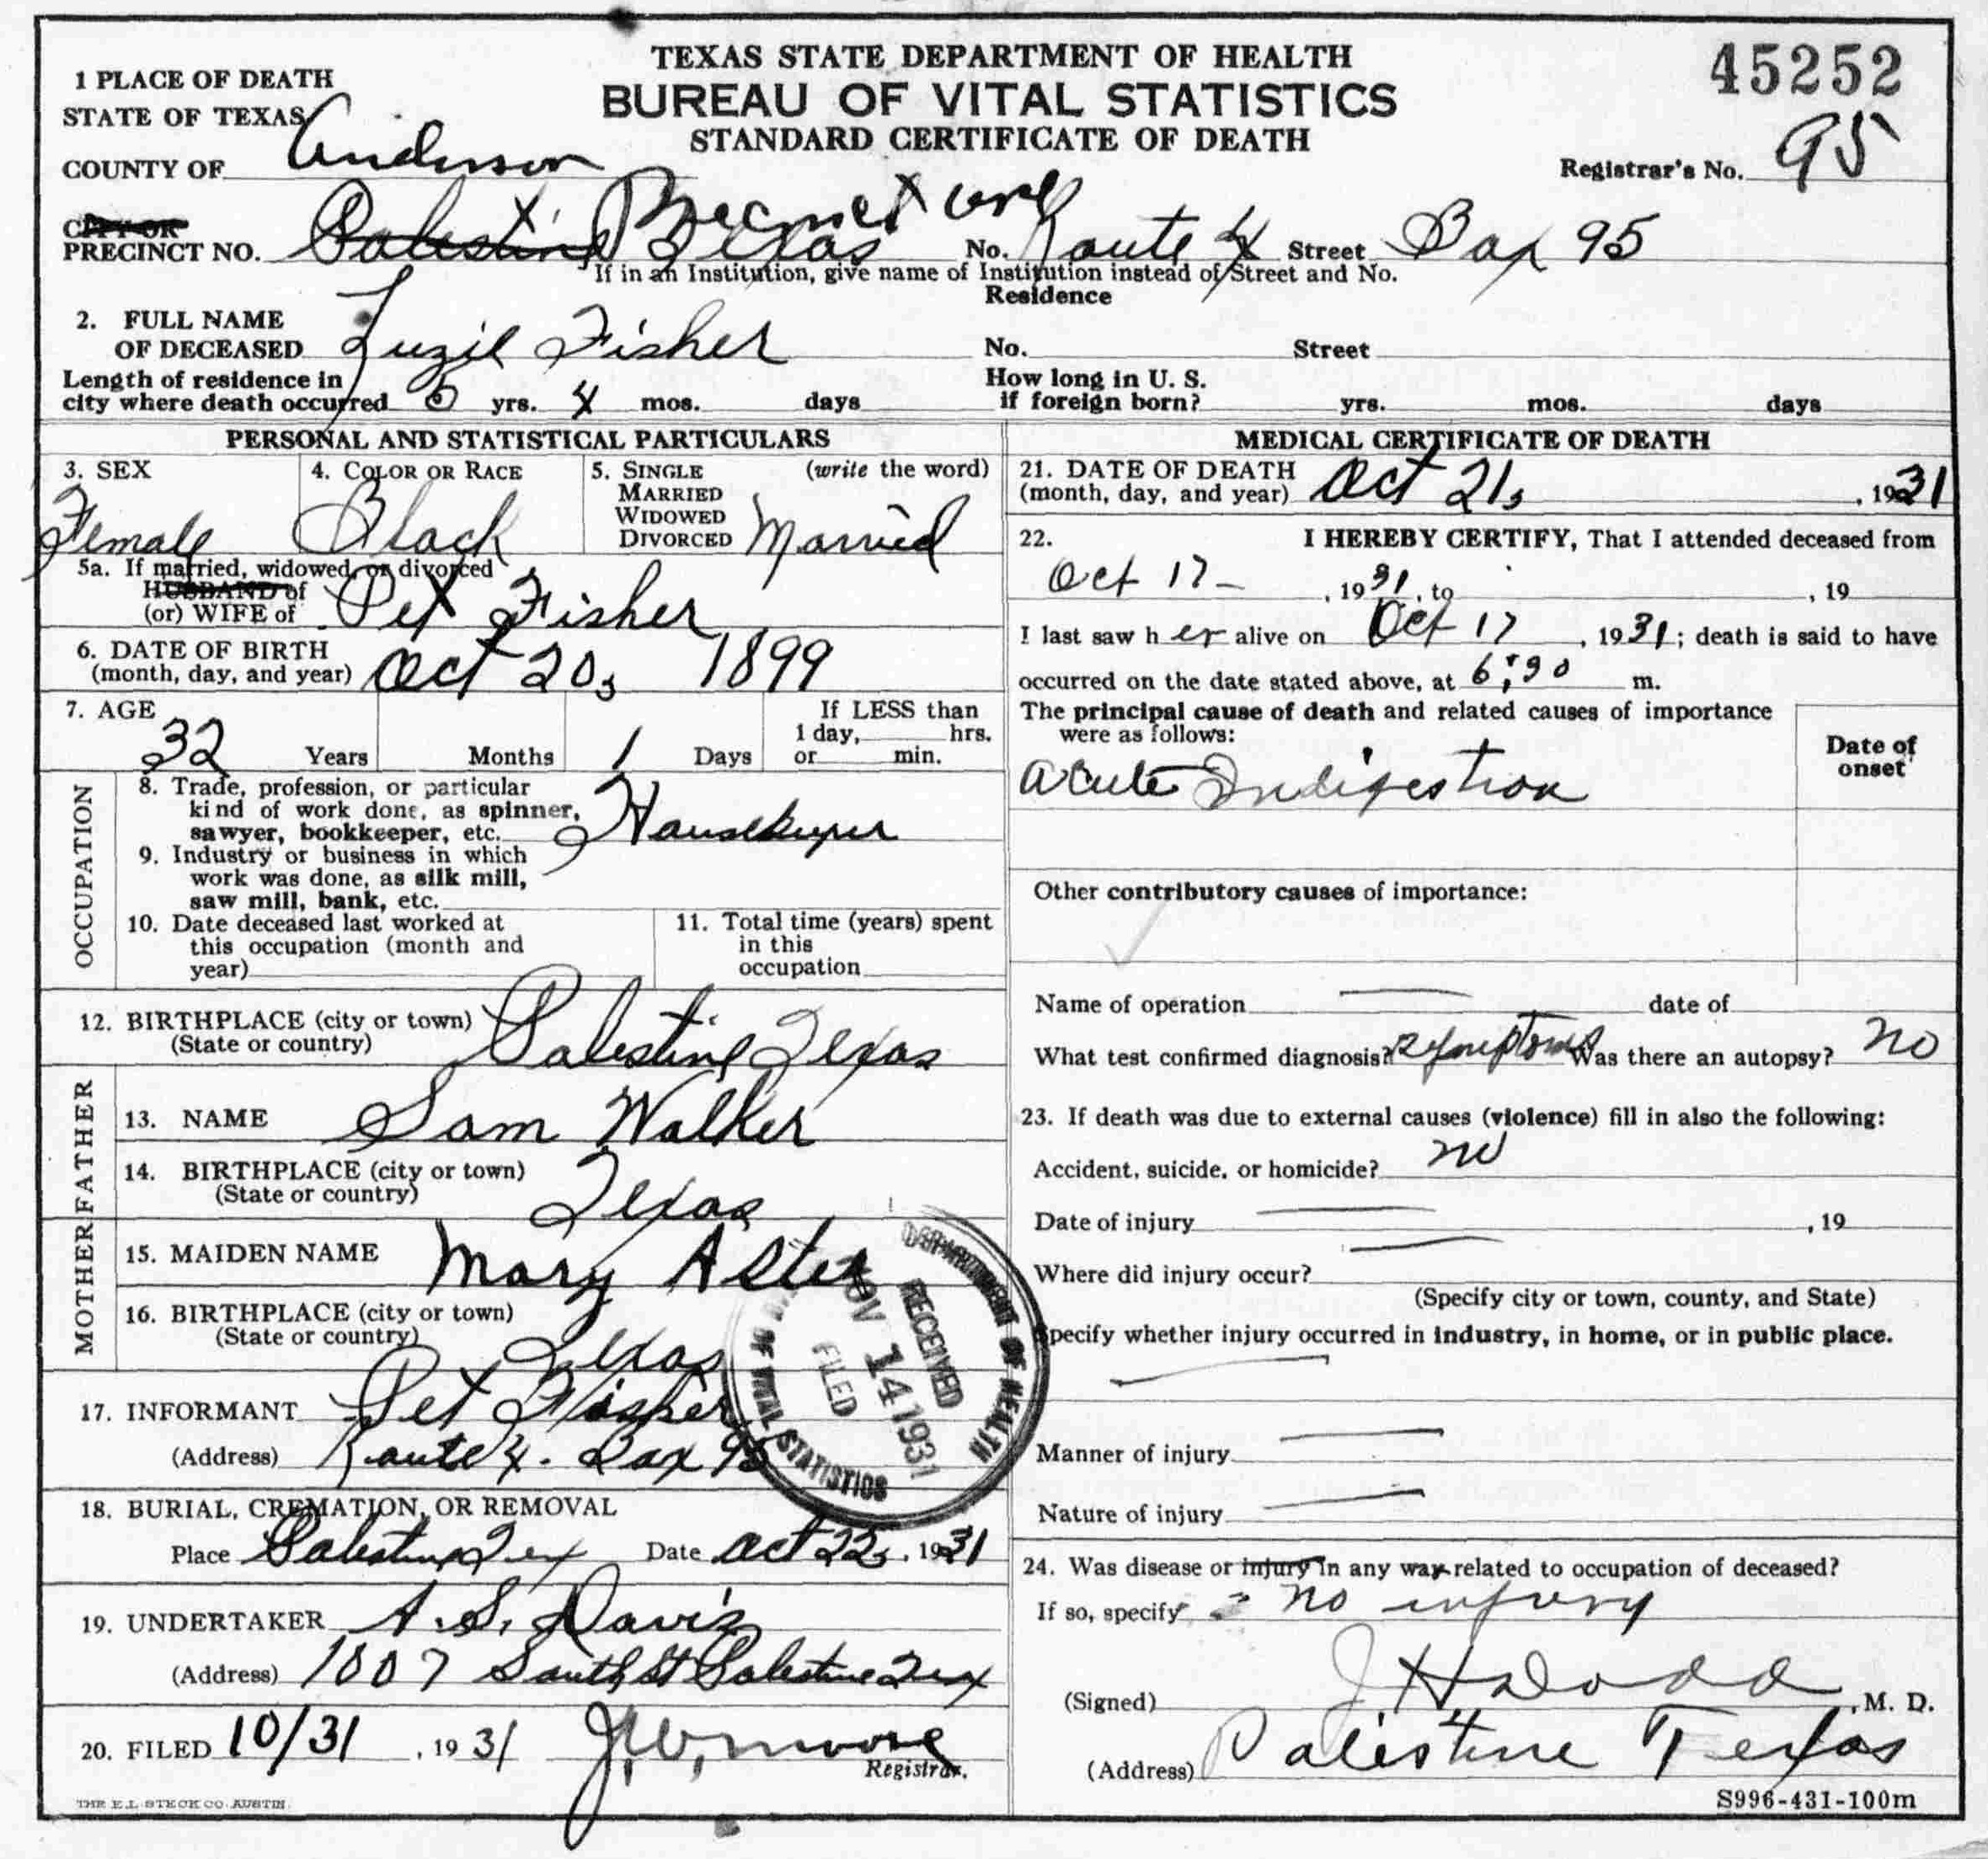 TEXAS STATE DEPARTMENT OF HEALTH
BUREAU OF VITAL STATISTICS
STANDARD CERTIFICATE OF DEATH
45252
Registrar's No. 95
1 PLACE OF DEATH
STATE OF TEXAS
COUNTY OF Anderson
CITY OR
PRECINCT NO. Palestine Texas Precinct one No. Route 4 Street Box 95
If in an Institution, give name of Institution instead of Street and No.
Residence
2. FULL NAME
OF DECEASED Luzil Fisher No. Street
Length of residence in
city where death occurred yrs. 4 mos. days
How long in U. S.
if foreign born? yrs. mos. days
PERSONAL AND STATISTICAL PARTICULARS
3. SEX
Female
4. COLOR OR RACE
Black
5. SINGLE (write the word)
MARRIED
WIDOWED
DIVORCED Married
5a. If married, widowed, or divorced
HUSBAND of
(or) WIFE of Pet Fisher
6. DATE OF BIRTH
(month, day, and year) Oct 20, 1899
7. AGE
32 Years Months 1 Days
If LESS than
1 day, hrs.
or min.
OCCUPATION
8. Trade, profession, or particular
kind of work done, as spinner,
sawyer, bookkeeper, etc. Housekeeper
9. Industry or business in which
work was done, as silk mill,
saw mill, bank, etc.
10. Date deceased last worked at
this occupation (month and
year)
11. Total time (years) spent
in this
occupation
12. BIRTHPLACE (city or town) Palestine Texas
(State or country)
FATHER
13. NAME Sam Walker
14. BIRTHPLACE (city or town)
(State or country) Texas
MOTHER
15. MAIDEN NAME Mary
16. BIRTHPLACE (city or town)
(State or country) Texas
17. INFORMANT Pet Fisher
(Address) Route 4. Box 95
18. BURIAL, CREMATION, OR REMOVAL
Place Palestine Tex Date Oct 22, 1931
19. UNDERTAKER A. S. Davis
(Address) 1007 South St Palestine Tex
20. FILED 10/31, 1931 J. W. Moore
Registrar.
THE E.L. STECK CO. AUSTIN
DEPARTMENT OF HEALTH
RECEIVED
NOV 14 1931
FILED
OF VITAL STATISTICS
MEDICAL CERTIFICATE OF DEATH
21. DATE OF DEATH
(month, day, and year) Oct 21, 1931
22. I HEREBY CERTIFY, That I attended deceased from
Oct 17 - , 1931, to , 19
I last saw her alive on Oct 17, 1931; death is said to have
occurred on the date stated above, at m.
The principal cause of death and related causes of importance
were as follows:
Date of
onset
Acute Indigestion
Other contributory causes of importance:
Name of operation date of
What test confirmed diagnosis? Symptoms Was there an autopsy? No
23. If death was due to external causes (violence) fill in also the following:
Accident, suicide, or homicide? no
Date of injury , 19
Where did injury occur?
(Specify city or town, county, and State)
Specify whether injury occurred in industry, in home, or in public place.
Manner of injury
Nature of injury
24. Was disease or injury in any way related to occupation of deceased?
If so, specify no injury
(Signed) J H Dodd, M. D.
(Address) Palestine Texas
S996-431-100m